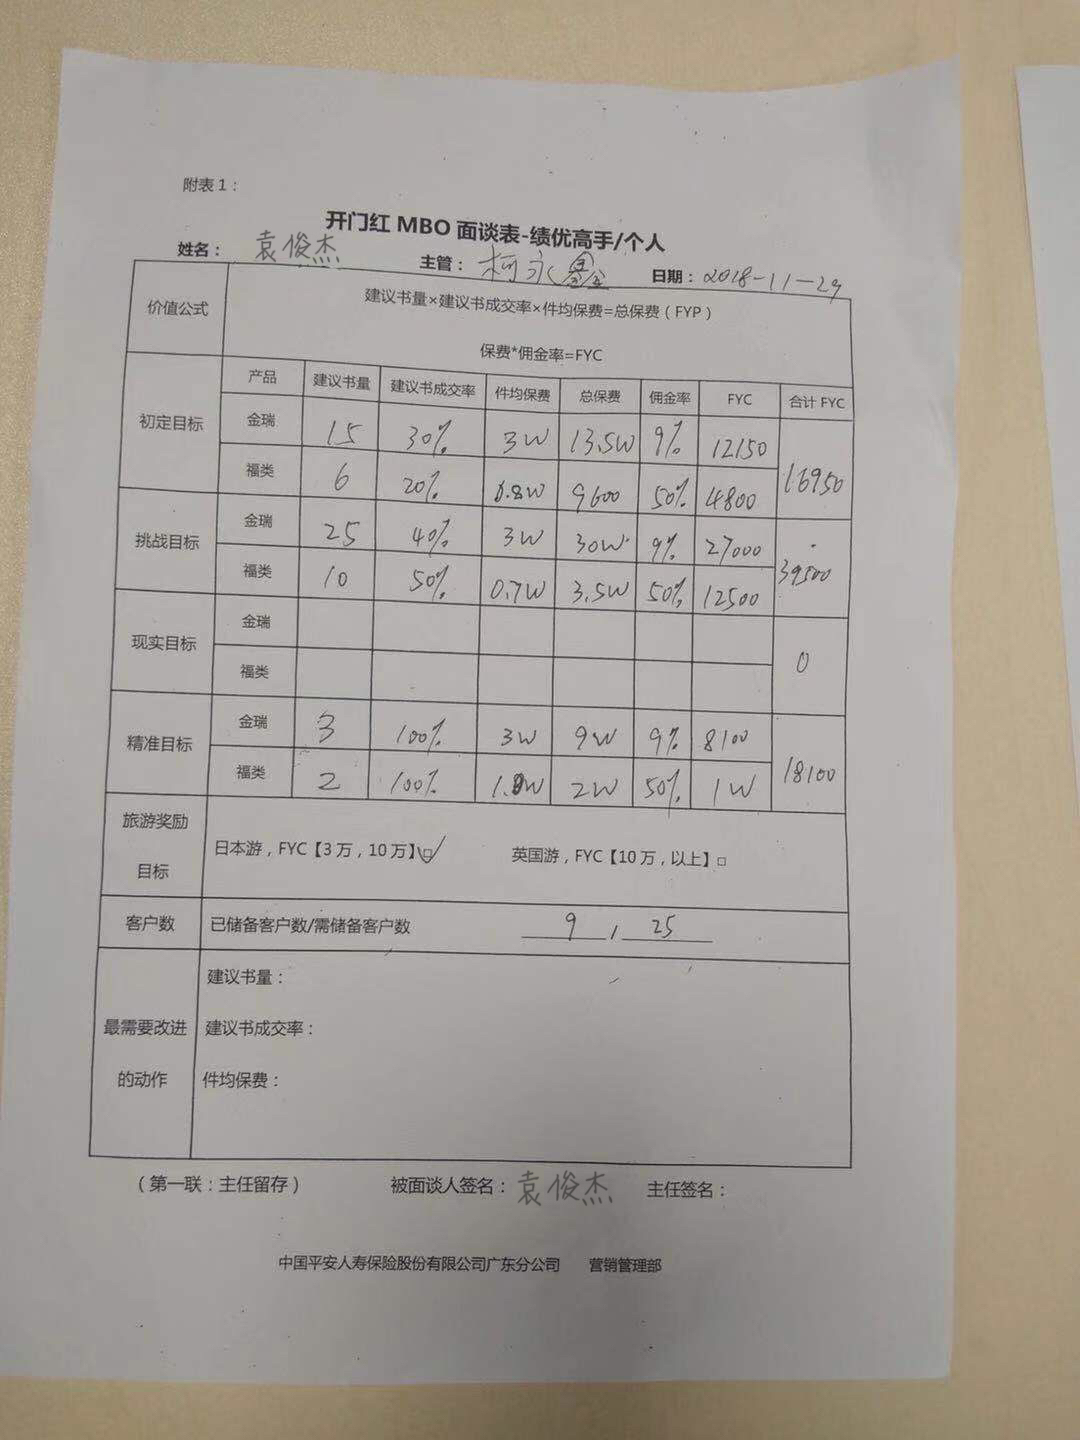 附表1：
开门红 MBO 面谈表-绩优高手/个人
姓名： 袁俊杰 主管： 柯永 日期：2018-11-29
价值公式 建议书量×建议书成交率×件均保费=总保费（FYP）
保费*佣金率=FYC
产品 建议书量 建议书成交率 件均保费 总保费 佣金率 FYC 合计 FYC
初定目标 金瑞 15 30% 3W 13.5W 9% 12150 16950
福类 6 20% 0.8W 9600 50% 4800
挑战目标 金瑞 25 40% 3W 30W 9% 27000 39500
福类 10 50% 0.7W 3.5W 50% 12500
现实目标 金瑞 0
福类
精准目标 金瑞 3 100% 3W 9W 9% 8100 18100
福类 2 100% 1.0W 2W 50% 1W
旅游奖励目标 日本游，FYC【3万，10万】□√ 英国游，FYC【10万，以上】□
客户数 已储备客户数/需储备客户数 9 / 25
最需要改进的动作 建议书量：
建议书成交率：
件均保费：
（第一联：主任留存） 被面谈人签名：袁俊杰 主任签名：
中国平安人寿保险股份有限公司广东分公司 营销管理部